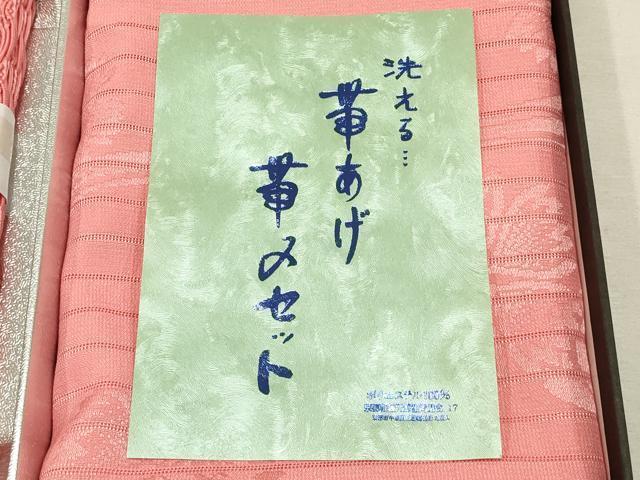 洗える…
帯あげ
帯〆セット
ポリエステル100%